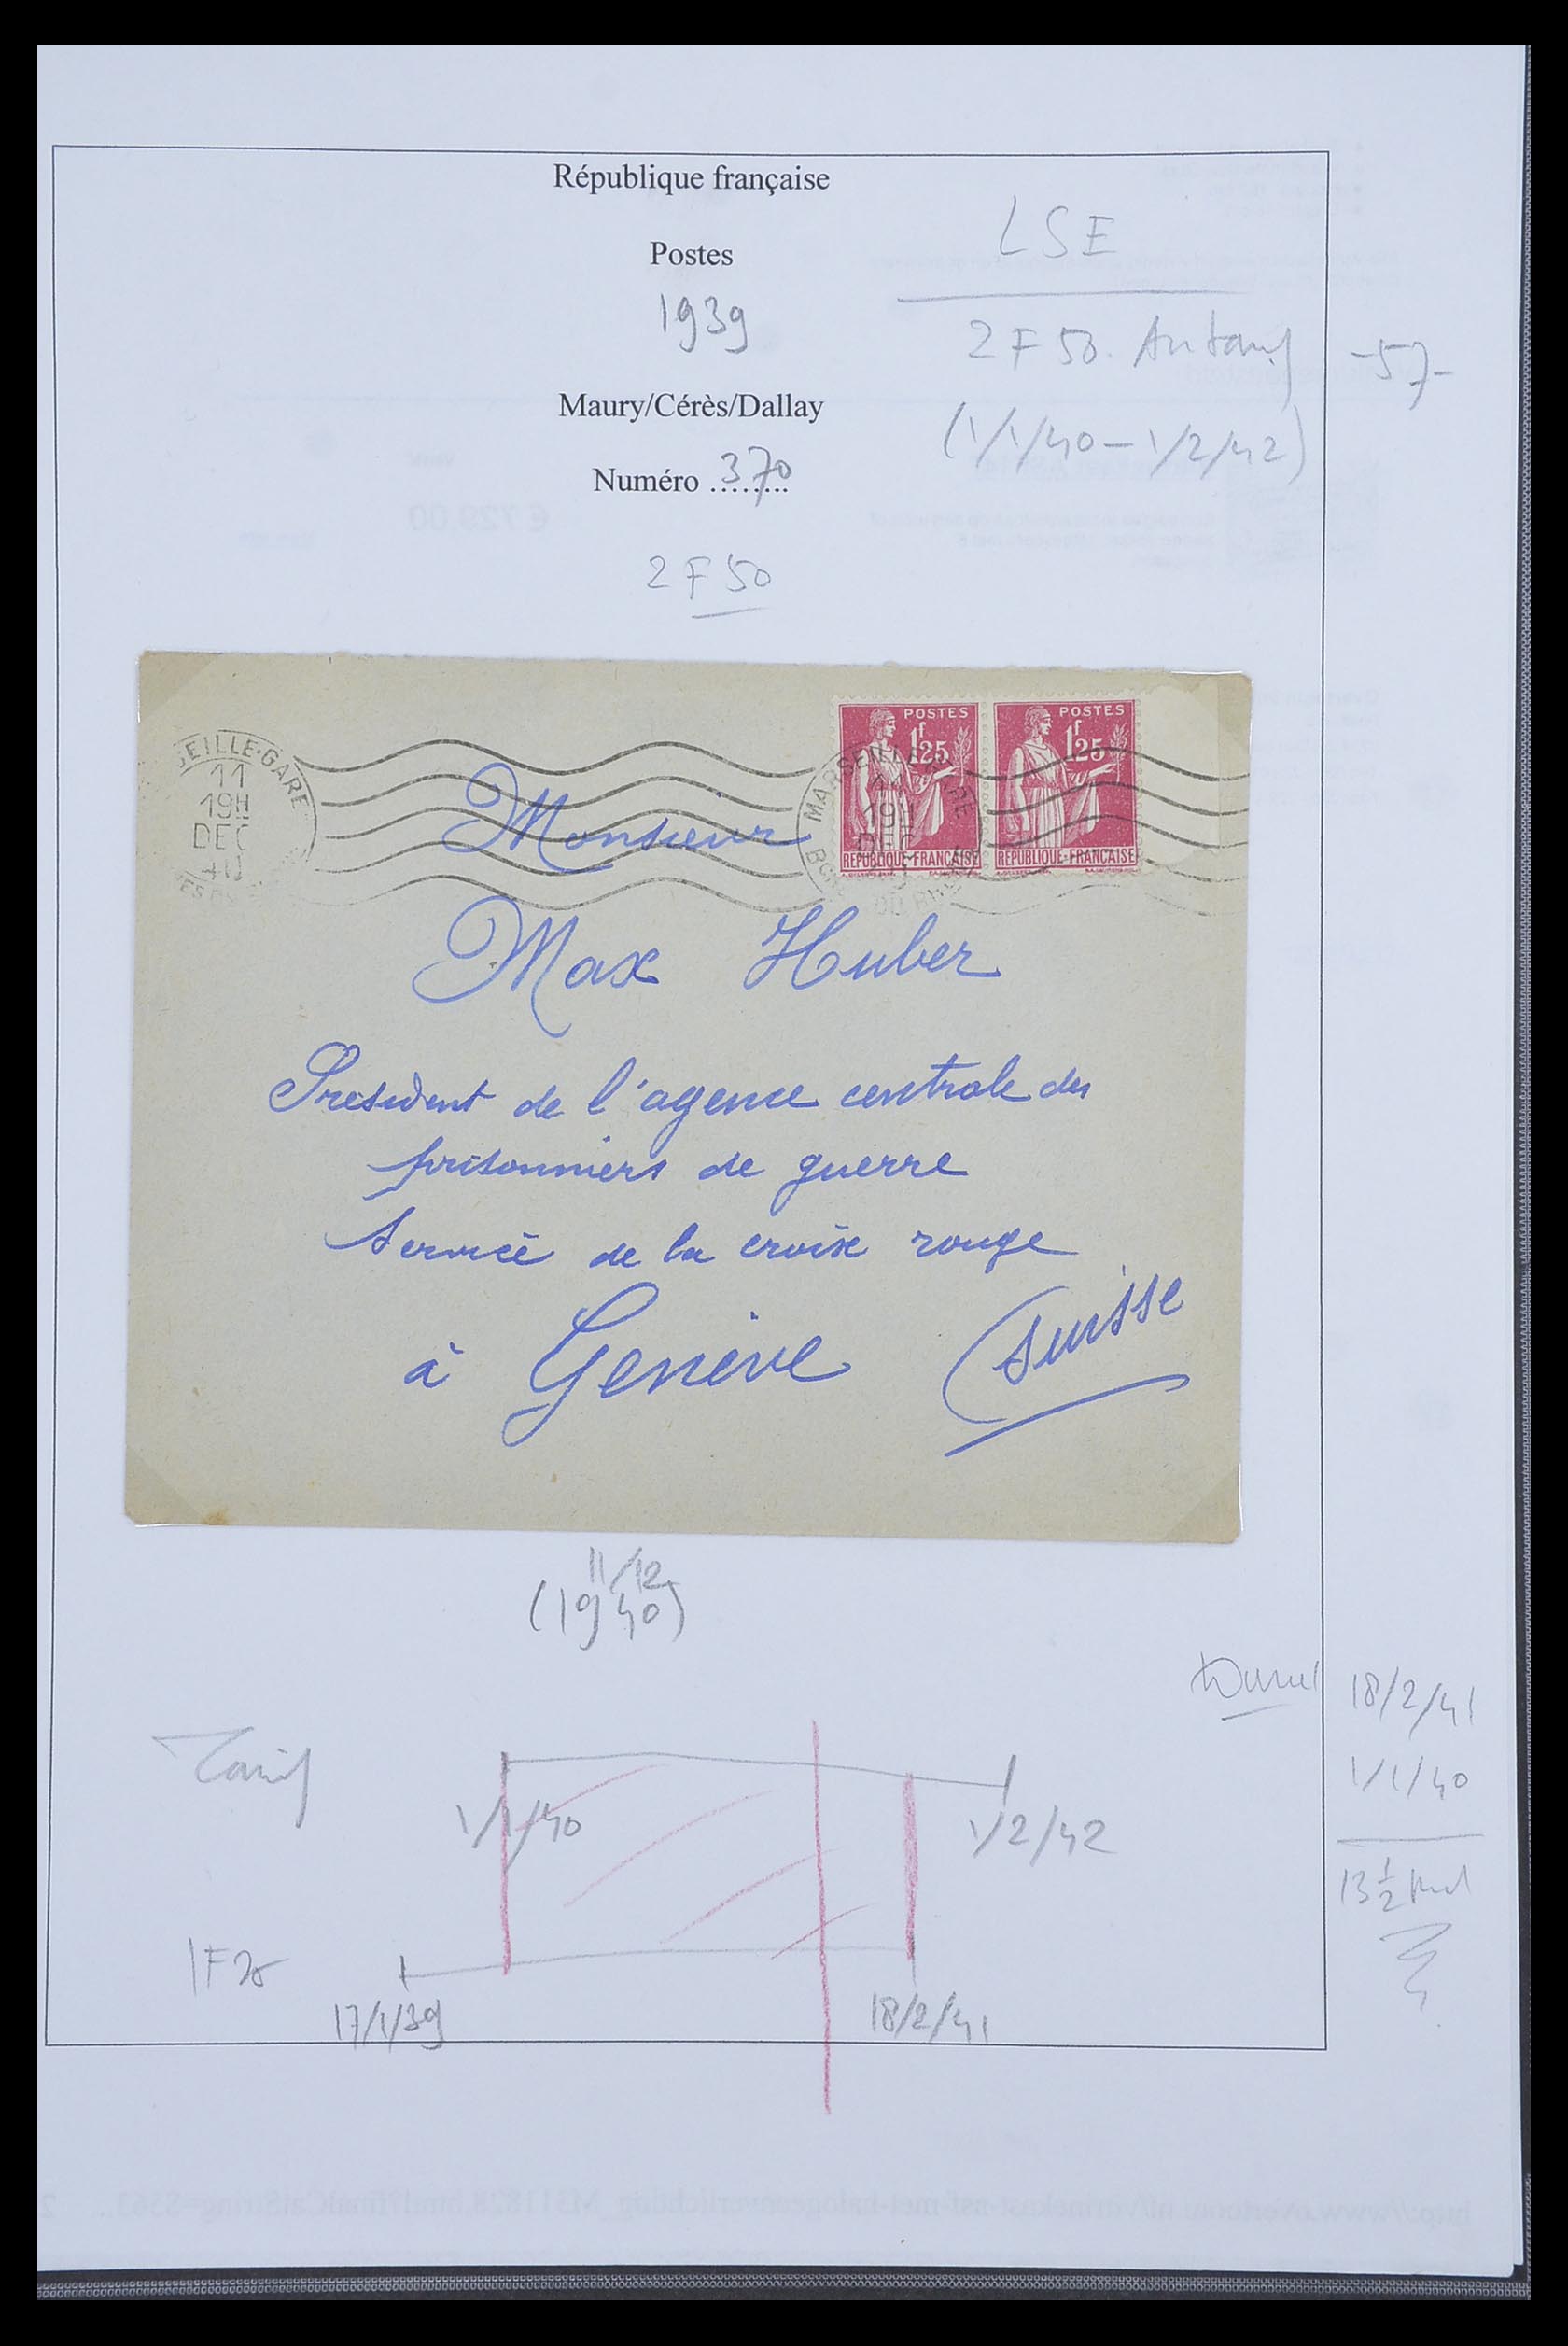 République française
LSE
Postes
1939
2F50.
-57-
Maury/Cérès/Dallay
(1/1/40 - 1/2/42)
Numéro ........ 370
2F50
POSTES
1f25
REPUBLIQUE FRANÇAISE
POSTES
1f25
REPUBLIQUE FRANÇAISE
SEILLE-GARE
11
19H
DEC
40
MARSEILLE GARE
19H
DEC
Monsieur
Max Huber
Président de l'agence centrale des
prisonniers de guerre
Service de la croix rouge
à Genève (Suisse
11/12
(1940)
18/2/41
1/1/40
13 1/2
Tarif
1/1/40
1/2/42
1F25
17/1/39
18/2/41